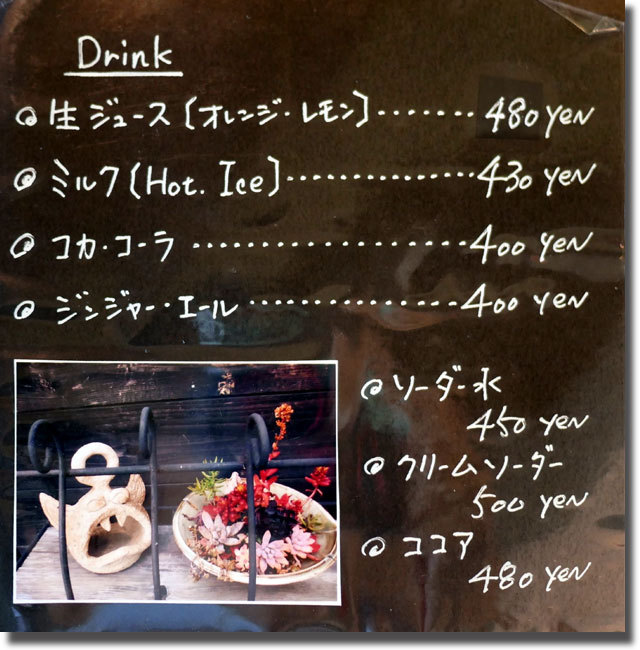 Drink
◎ 生ジュース〔オレンジ・レモン〕・・・・・・・480 YEN
◎ ミルク〔Hot. Ice〕・・・・・・・・・・・・・・430 YEN
◎ コカ・コーラ ・・・・・・・・・・・・・・・・・・400 YEN
◎ ジンジャー・エール・・・・・・・・・・・・・・400 YEN
◎ ソーダー水
450 YEN
◎ クリームソーダー
500 YEN
◎ ココア
480 YEN